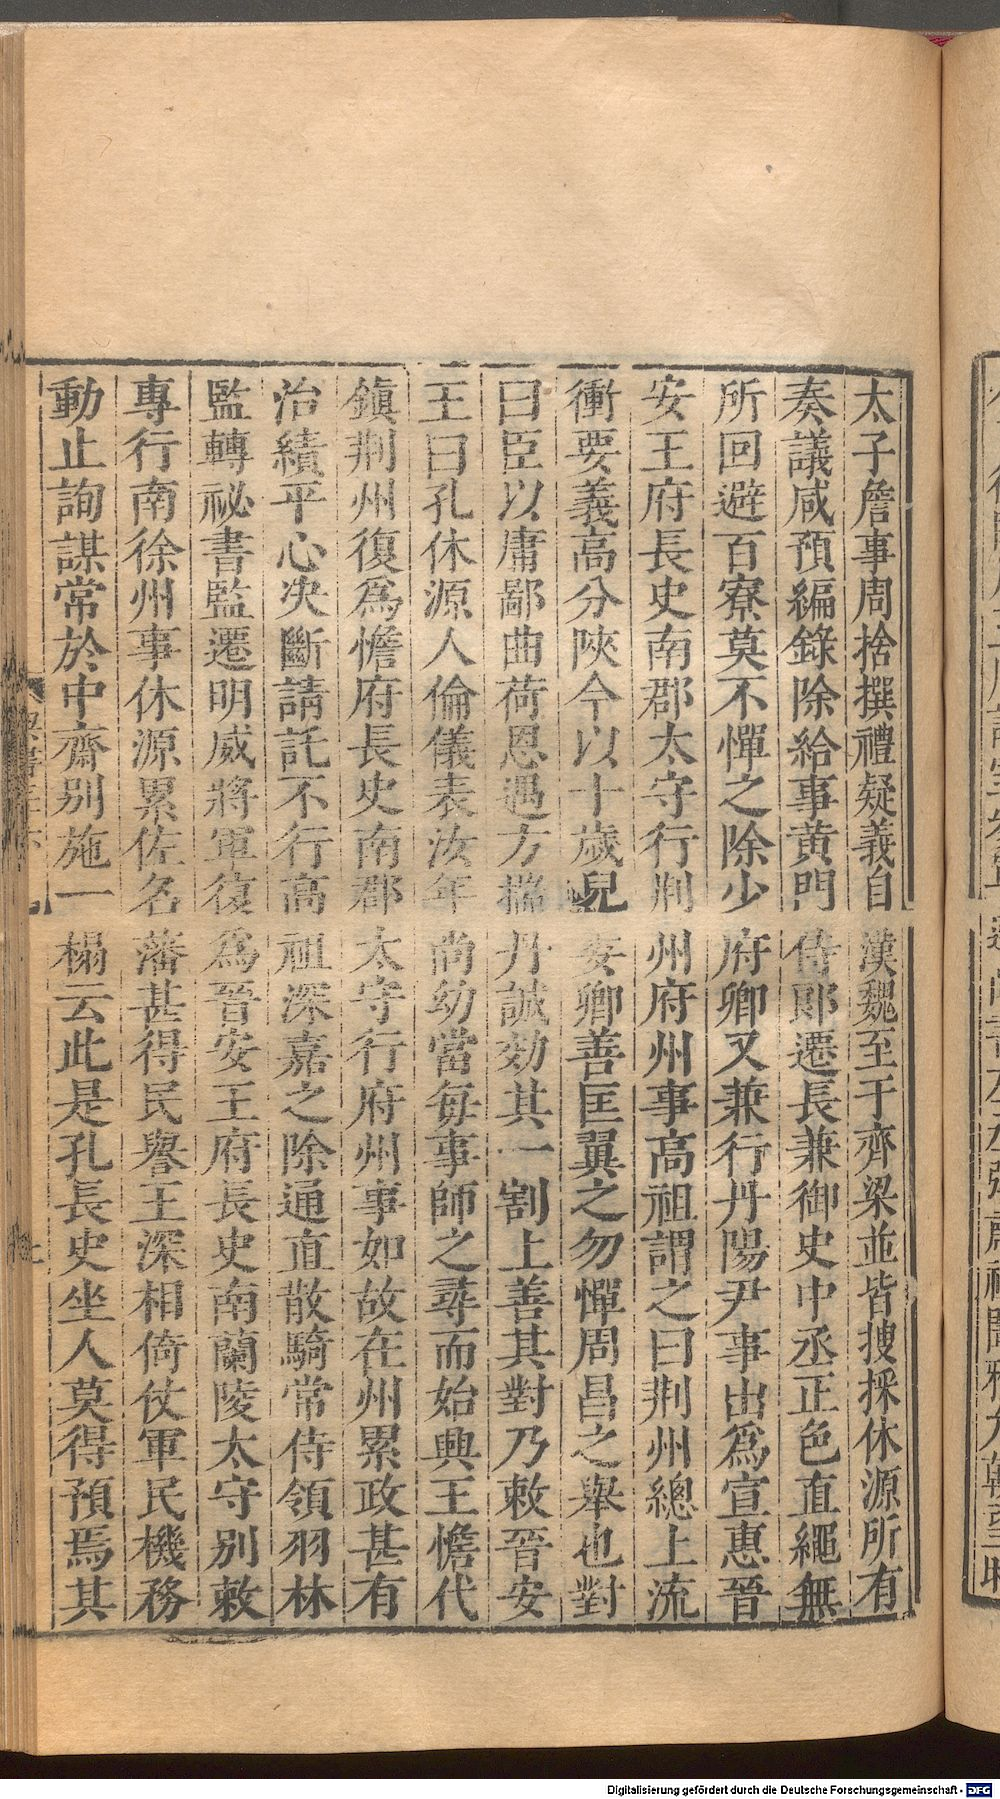 太子詹事周捨撰禮疑義自漢魏至于齊梁並皆捜採休源所有
奏議咸預編錄除給事黃門侍郎遷長兼御史中丞正色直繩無
所回避百寮莫不憚之除少府卿又兼行丹陽尹事出爲宣惠晉
安王府長史南郡太守行荆州府州事高祖謂之曰荆州總上流
衝要義高分陝今以十歲兒安卿善匡翼之勿憚周昌之舉也對
曰臣以庸鄙曲荷恩遇方揣丹誠効其一割上善其對乃敕晉安
王曰孔休源人倫儀表汝年尚幼當每事師之尋而始興王憺代
鎭荆州復爲憺府長史南郡太守行府州事如故在州累政甚有
治績平心决斷請託不行高祖深嘉之除通直散騎常侍領羽林
監轉祕書監遷明威將軍復爲晉安王府長史南蘭陵太守别敕
專行南徐州事休源累佐名藩甚得民譽王深相倚仗軍民機務
動止詢謀常於中齋别施一榻云此是孔長史坐人莫得預焉其
Digitalisierung gefördert durch die Deutsche Forschungsgemeinschaft - DFG